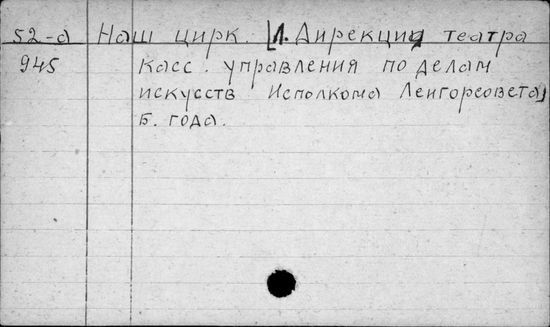 52-а Наш цирк. [Л. Дирекция театра
945 касс. управления по делам
искусств Исполкома Ленгорсовета]
Б. года.